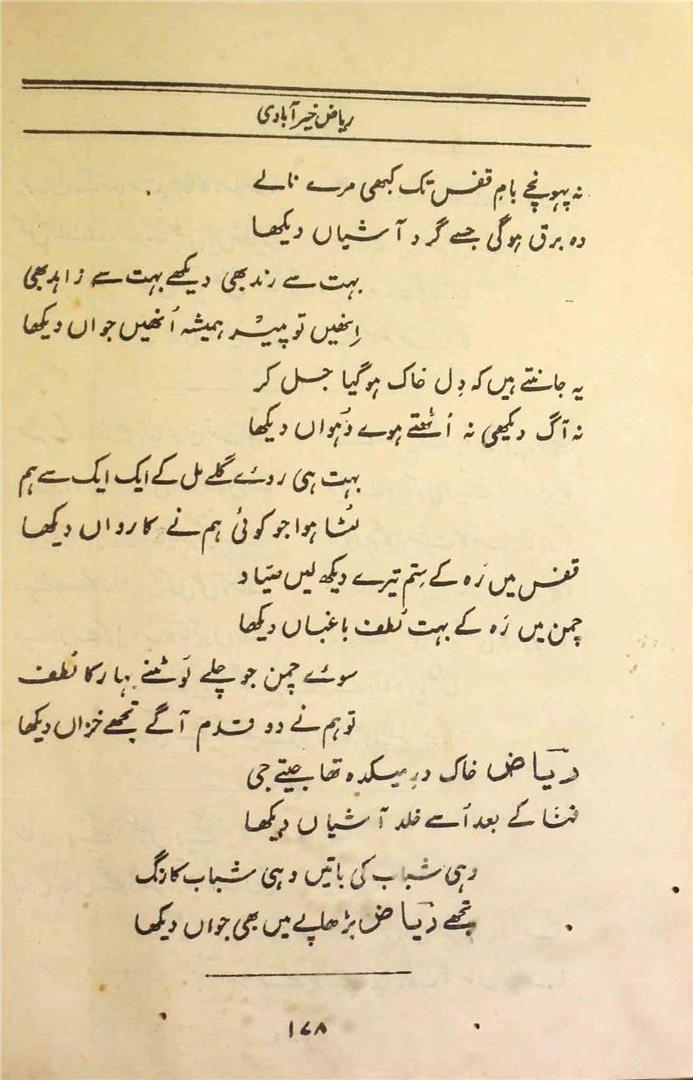 ریاض خیرآبادی
نہ پہونچے بامِ قفس تک کبھی مرے نالے
وہ برق ہوگی جسے گردِ آشیاں دیکھا
بہت سے رند بھی دیکھے بہت سے زاہد بھی
اِنھیں تو پیر ہمیشہ اُنھیں جواں دیکھا
یہ جانتے ہیں کہ دِل خاک ہوگیا جل کر
نہ آگ دیکھی نہ اُٹھتے ہوے دُھواں دیکھا
بہت ہی روئے گلے مل کے ایک ایک سے ہم
لُٹا ہوا جو کوئی ہم نے کارواں دیکھا
قفس میں رَہ کے سِتم تیرے دیکھ لیں صیّاد
چمن میں رَہ کے بہت لُطفِ باغباں دیکھا
سوئے چمن جو چلے لوٹنے بہار کا لُطف
تو ہم نے دو قدم آگے تجھے خزاں دیکھا
ریاض خاک درِ میکدہ تھا جیتے جی
فنا کے بعد اُسے خلد آشیاں دیکھا
وہی شباب کی باتیں وہی شباب کا رنگ
تجھے ریاض بڑھاپے میں بھی جواں دیکھا
۱۷۸